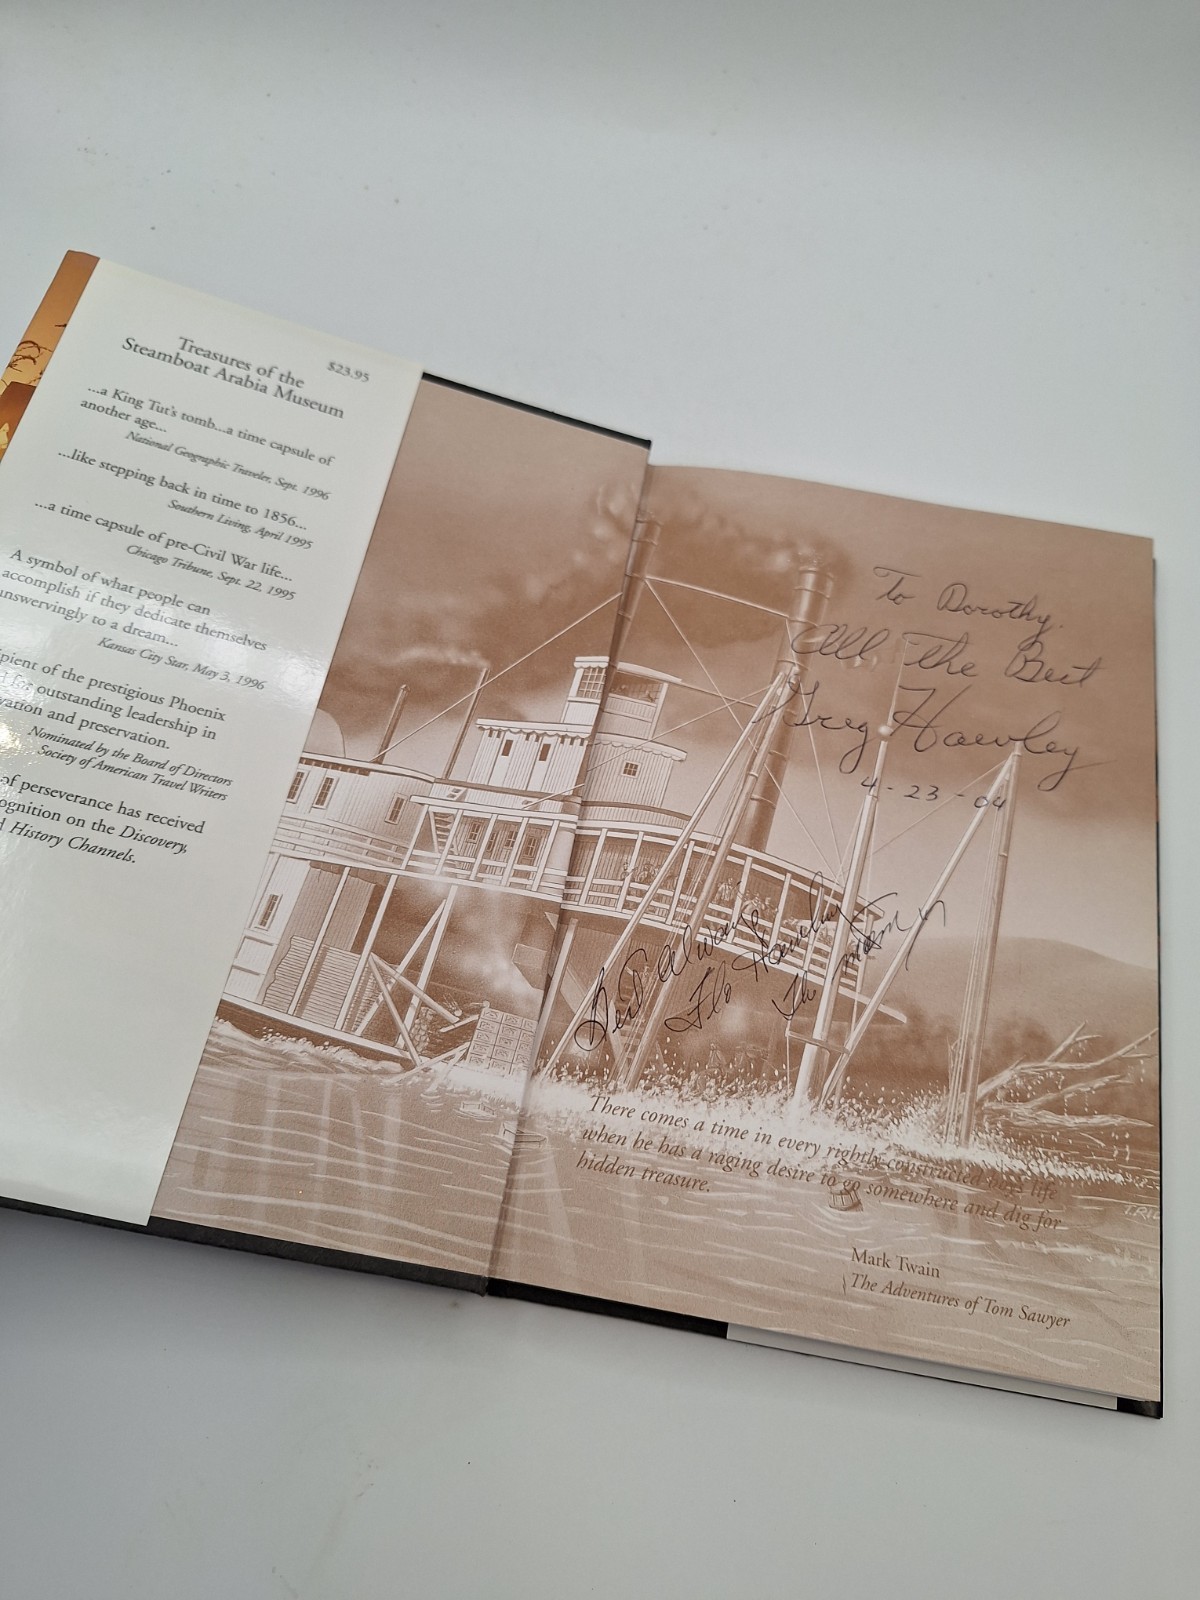 Treasures of the
Steamboat Arabia Museum
$23.95
...a King Tut's tomb...a time capsule of
another age...
National Geographic Traveler, Sept. 1996
...like stepping back in time to 1856...
Southern Living, April 1995
...a time capsule of pre-Civil War life...
Chicago Tribune, Sept. 22, 1995
A symbol of what people can
accomplish if they dedicate themselves
unswervingly to a dream...
Kansas City Star, May 3, 1996
of the prestigious Phoenix
for outstanding leadership in
and preservation.
Nominated by the Board of Directors
Society of American Travel Writers
of perseverance has received
on the Discovery,
History Channels.
To Dorothy.
All The Best
Greg Hawley
4-23-04
Best Always
Flo Hawley
The mom
There comes a time in every rightly-constructed boy's life
when he has a raging desire to go somewhere and dig for
hidden treasure.
Mark Twain
The Adventures of Tom Sawyer